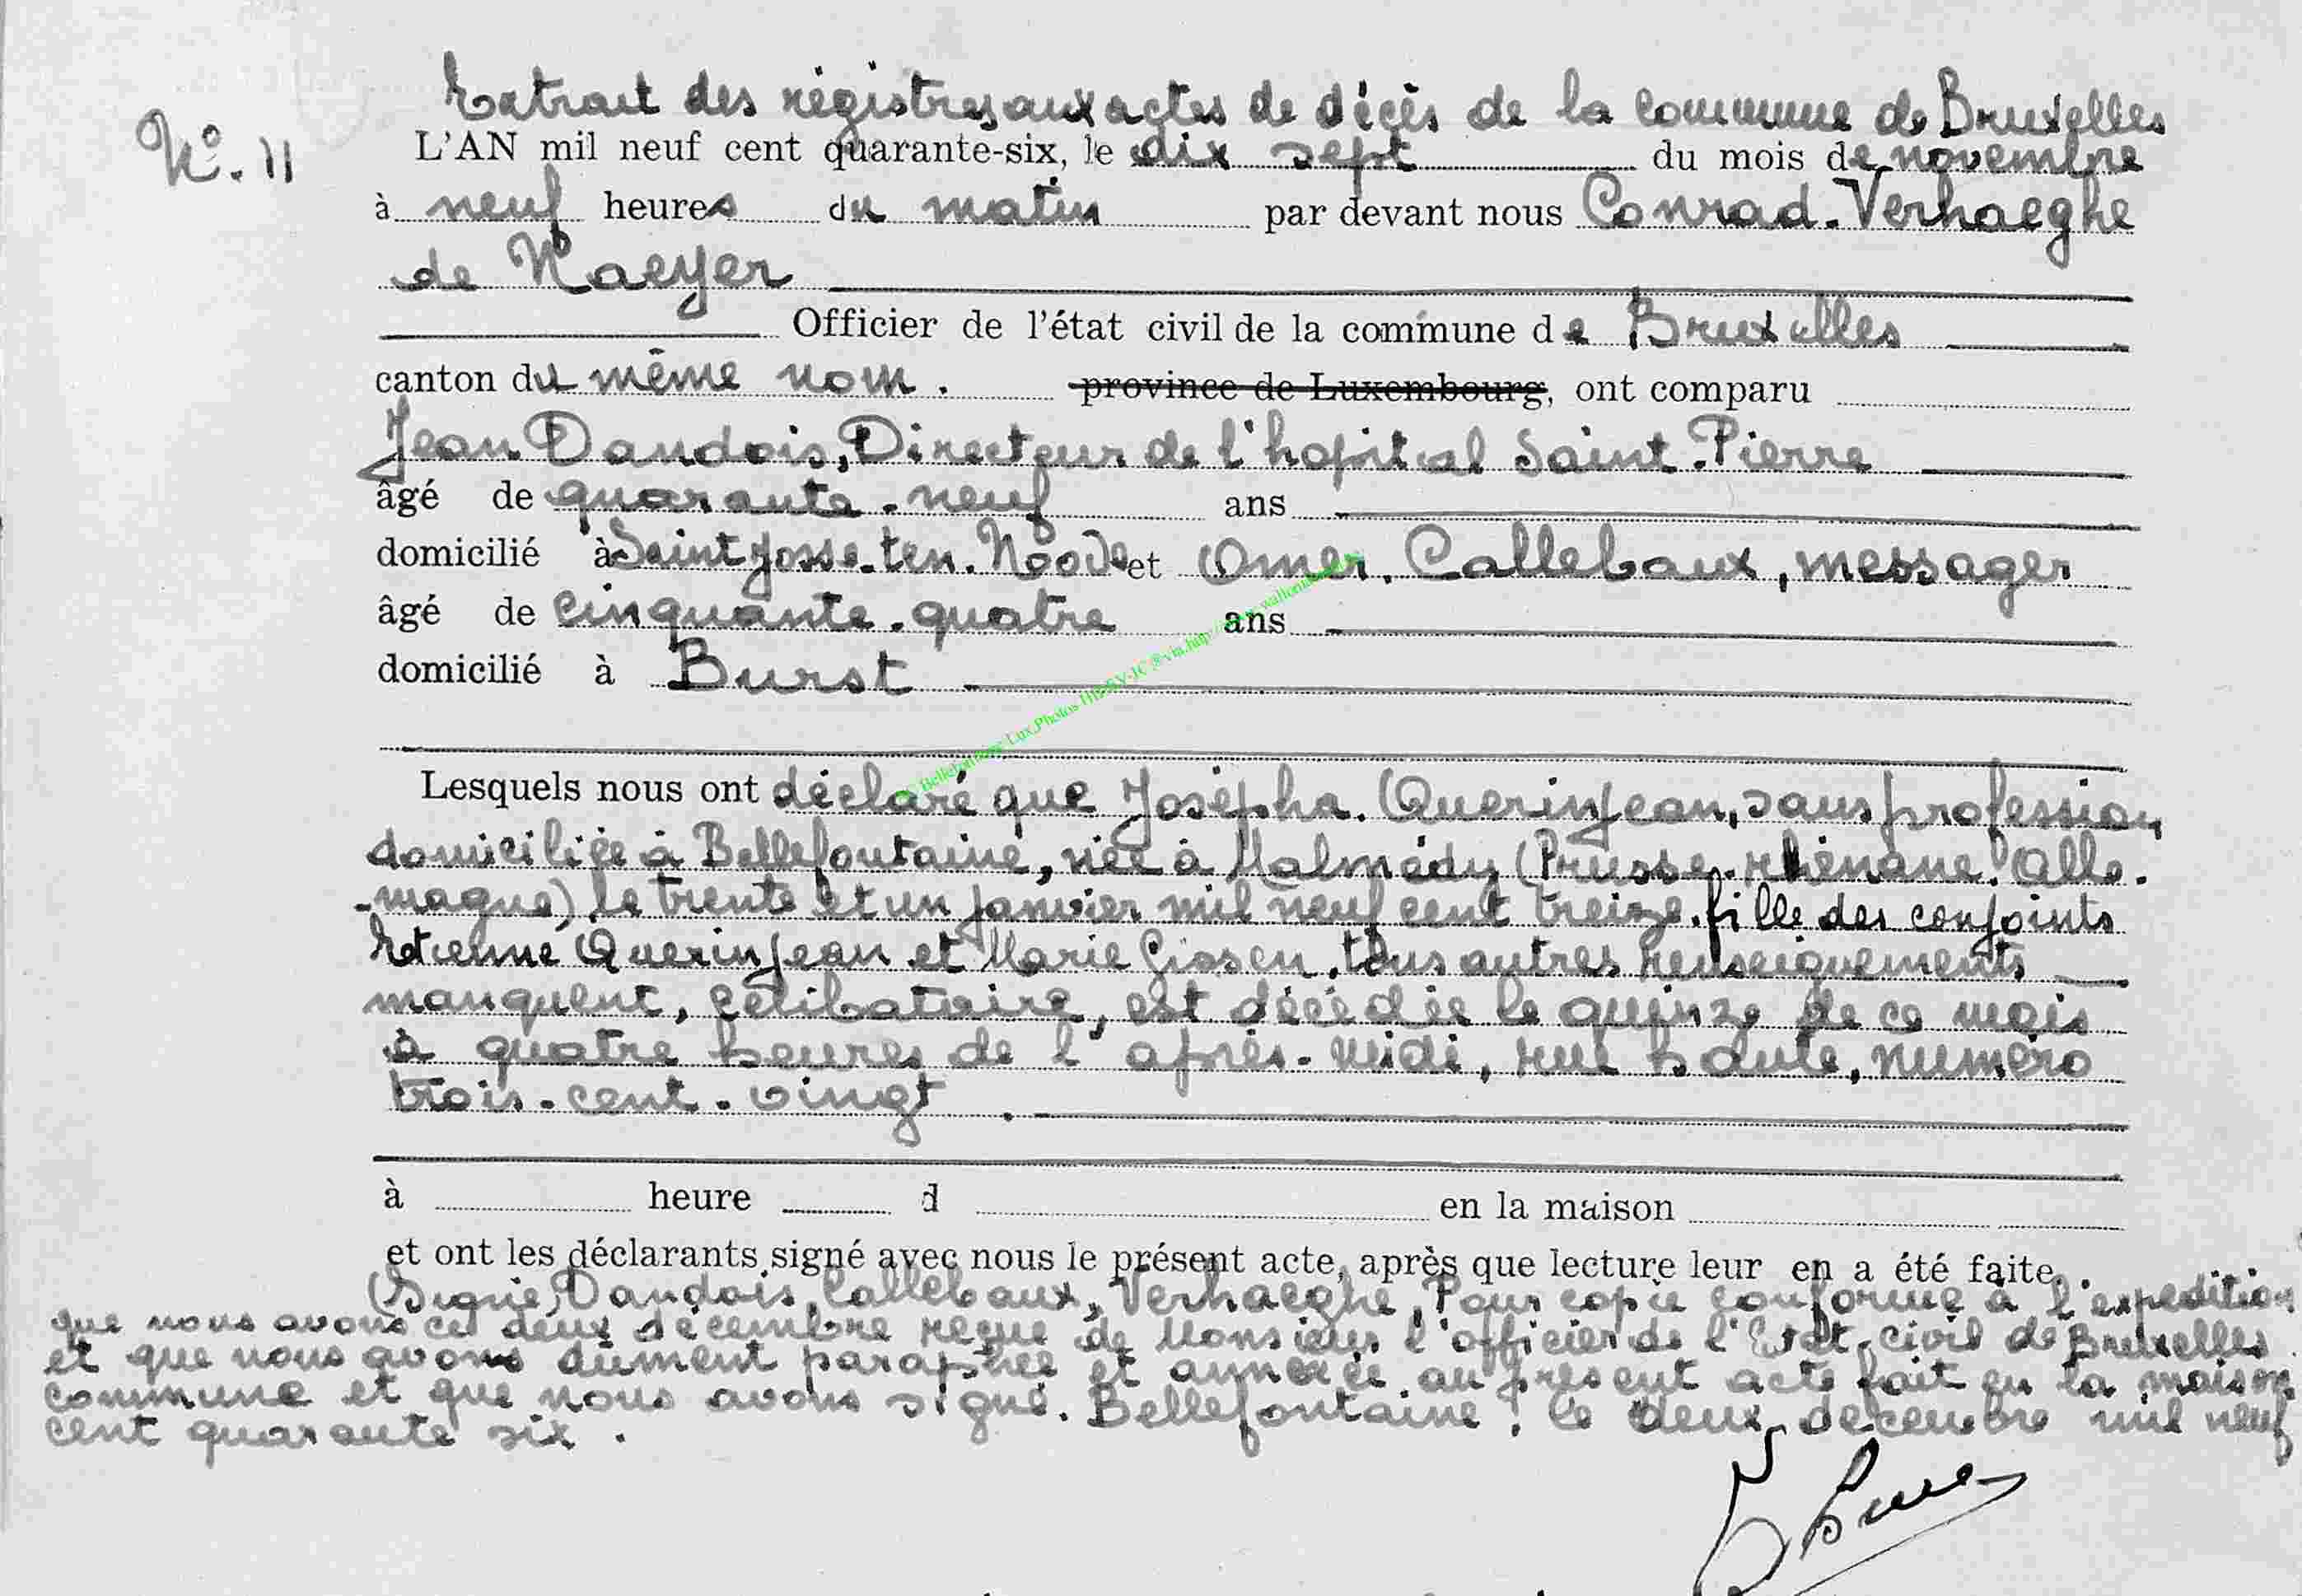 Extrait des régistres aux actes de décès de la commune de Bruxelles
N°. 11
L'AN mil neuf cent quarante-six, le dix sept du mois de novembre
à neuf heures du matin par devant nous Conrad. Verhaeghe
de Naeyer
Officier de l'état civil de la commune de Bruxelles
canton du même nom. province de Luxembourg, ont comparu
Jean Dandois, Directeur de l'hopital Saint. Pierre
âgé de quarante. neuf ans
domicilié à Saint Josse. ten. Noode et Omer. Callebaux, messager
âgé de cinquante. quatre ans
domicilié à Burst
Lesquels nous ont déclaré que Josépha. Querinjean, sans profession
domiciliée à Bellefontaine, née à Malmédy (Prusse. rhénane. Alle.
-magne) le trente et un janvier mil neuf cent treize. fille des conjoints
Etienne Querinjean et Marie Giosen. tous autres renseignements
manquent, célibataire, est décédée le quinze de ce mois
à quatre heures de l'après-midi, rue haute, numéro
trois. cent. vingt.
à heure d en la maison
et ont les déclarants signé avec nous le présent acte, après que lecture leur en a été faite.
(Signé) Dandois, Callebaux, Verhaeghe, Pour copie conforme à l'expedition
que nous avons ce deux décembre reçue de Monsieur l'officier de l'Etat. civil de Bruxelles
et que nous avons dûment paraphée et annexée au present acte fait en la maison
commune et que nous avons signé. Bellefontaine, le deux decembre mil neuf
cent quarante six.